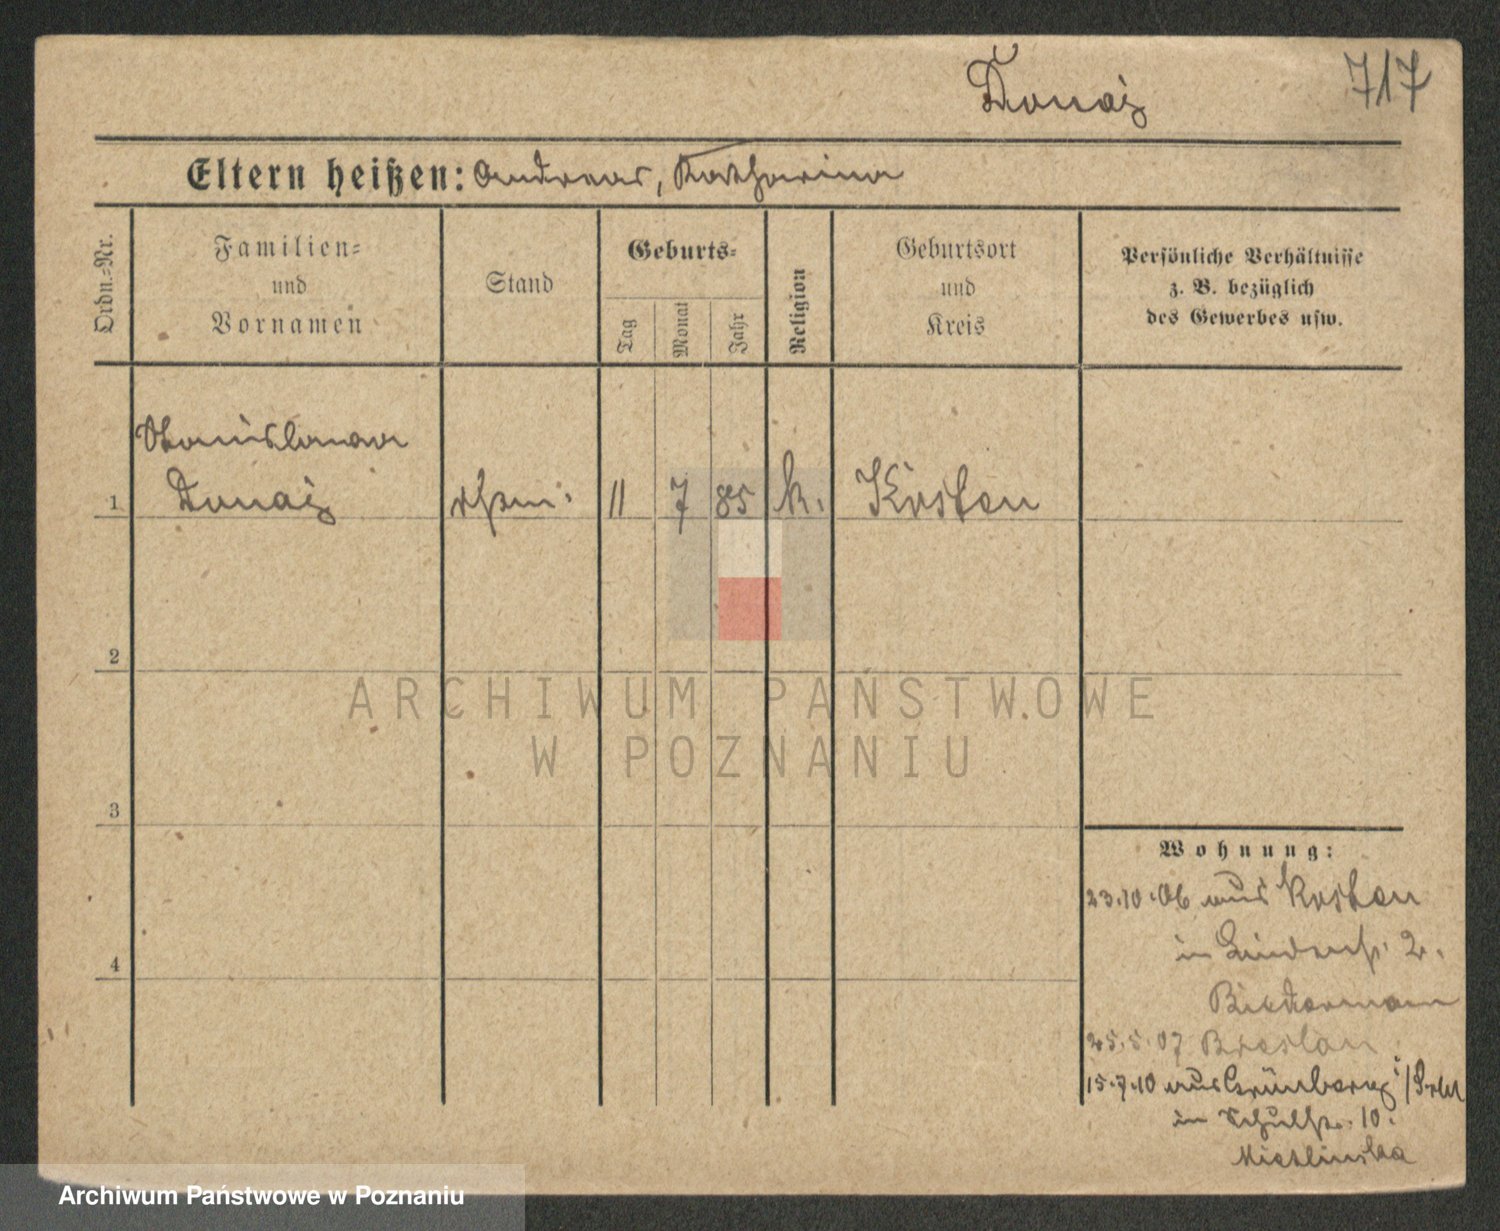 Donaj
717
Eltern heißen: Andreas, Katharina
Ordn.-Nr.
Familien-
und
Vornamen
Stand
Geburts-
Tag
Monat
Jahr
Religion
Geburtsort
und
Kreis
Persönliche Verhältnisse
z. B. bezüglich
des Gewerbes usw.
Stanislawa
1 Donaj 11 7 85 k. Kosten
2
3
4
Wohnung:
23.10.06 aus Kosten
in Lindenstr. 2.
Biedermann
25.5.07 Breslau
15.7.10 aus Grünberg i/Schl
in Schulstr. 10.
ARCHIWUM PAŃSTWOWE
W POZNANIU
Archiwum Państwowe w Poznaniu